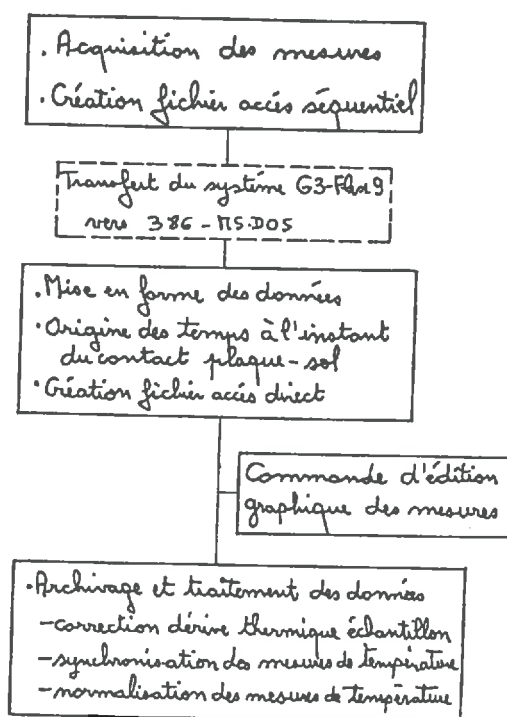 . Acquisition des mesures
. Création fichier accés séquentiel
Transfert du système G3-Flex9
vers 386-MS.DOS
. Mise en forme des données
. Origine des temps à l'instant
du contact plaque-sol
. Création fichier accés direct
Commande d'édition
graphique des mesures
. Archivage et traitement des données
- correction dérive thermique échantillon
- synchronisation des mesures de température
- normalisation des mesures de température